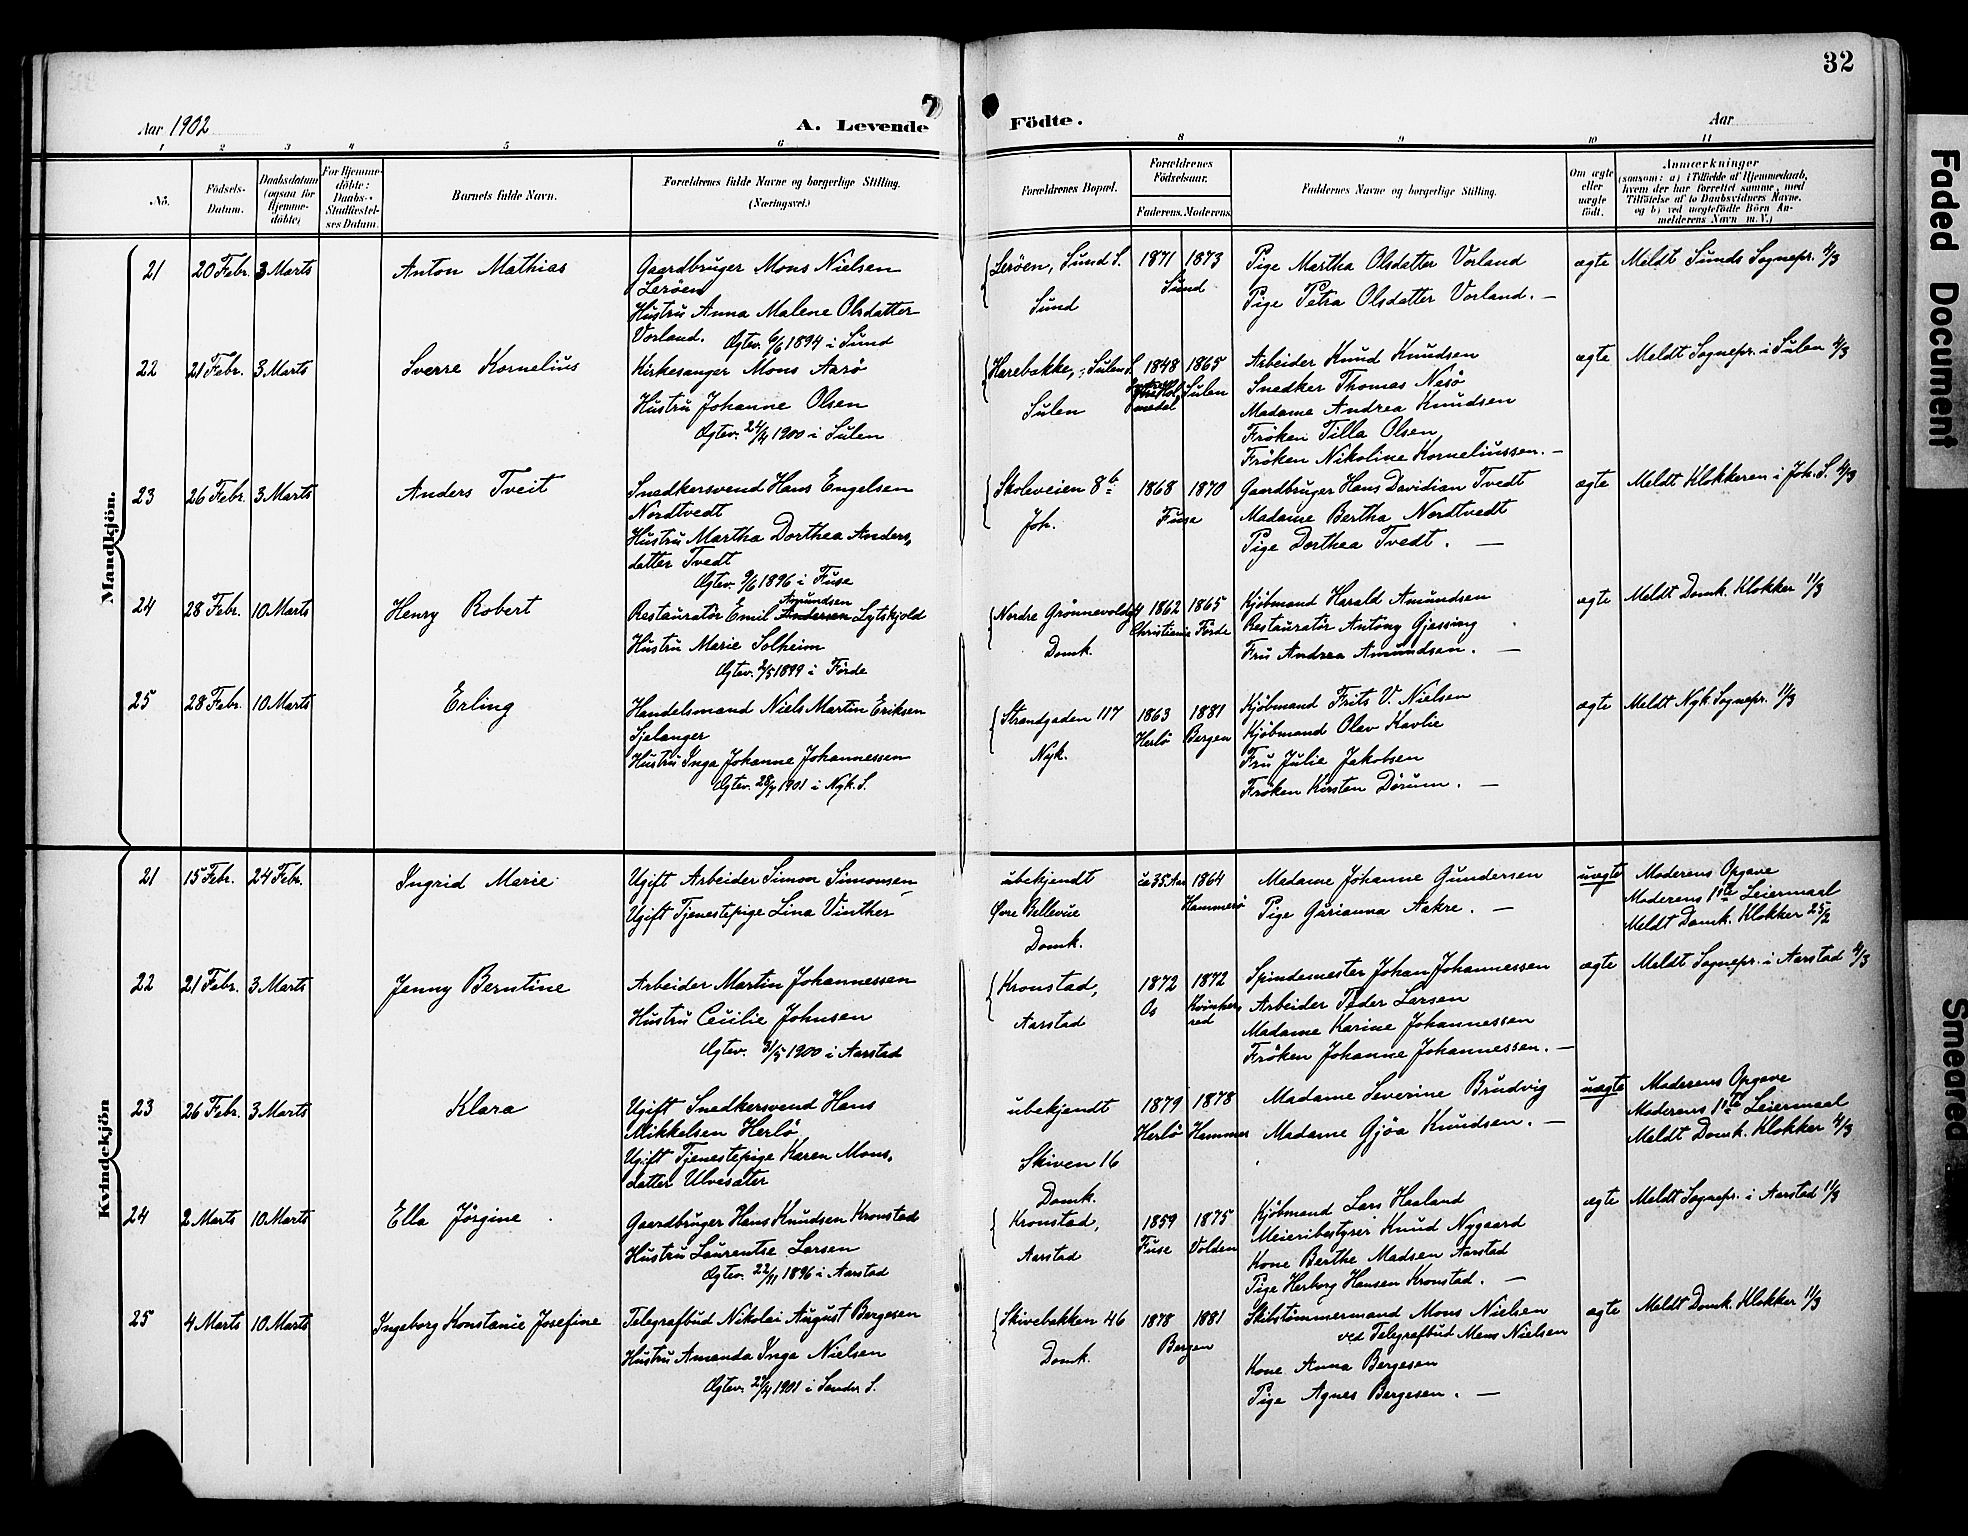 32
Aar 1902
A. Levende
Födte.
Aar
1 2 3 4 5 6 8 9 10 11
No.
Födsels-Datum.
Daabsdatum (ogsaa for Hjemme-döbte)
For Hjemme-döbte: Daabs-Stadfæstel-ses Datum.
Barnets fulde Navn.
Forældrenes fulde Navne og borgerlige Stilling. (Næringsvei.)
Forældrenes Bopæl.
Forældrenes Födselsaar.
Faderens. Moderens.
Faddernes Navne og borgerlige Stilling.
Om ægte eller uægte födt.
Anmærkninger
(saasom: a) i Tilfælde af Hjemmedaab, hvem der har forrettet samme, med Tilföielse af to Daabsvidners Navne, og b) ved uægtefödte Börn An-melderens Navn m. V.)
Mandkjön.
21 20 Febr. 3 Marts Anton Mathias
Gaardbruger Mons Nielsen
Leröen
Hustru Anna Malene Olsdatter
Vorland. Ægtev. 6/6 1894 i Sund
Leröen, Sund S.
Sund
1871 1873
Sund
Pige Martha Olsdatter Vorland
Pige Petra Olsdatter Vorland. —
ægte Meldt Sunds Sognepr. 4/3
22 21 Febr. 3 Marts Sverre Kornelius
Kirkesanger Mons Aarö
Hustru Johanne Olsen
Ægtev. 24/4 1900 i Sulen
Harebakke, Sulen S.
Sulen
1848 1865
Sulen
Arbeider Knud Knudsen
Snedker Thomas Nesö
Madame Andrea Knudsen
Fröken Tilla Olsen
Fröken Nikoline Korneliussen. —
ægte Meldt Sognepr. i Sulen 4/3
23 26 Febr. 3 Marts Anders Tveit
Snedkersvend Hans Engelsen
Nordtvedt
Hustru Martha Dorthea Anders-
datter Tvedt
Ægtev. 9/6 1896 i Fuse
Skoleveien 8b
Joh.
1868 1870
Fuse
Gaardbruger Hans Davidian Tvedt
Madame Bertha Nordtvedt
Pige Dorthea Tvedt. —
ægte Meldt Klokkeren i Joh. S. 4/3
24 28 Febr. 10 Marts Henry Robert
Amundsen
Restauratör Emil Andersen Lytskjold
Hustru Marie Solheim
Ægtev. 2/5 1899 i Förde
Nordre Grönnevold 4
Domk.
1862 1865
Christiania Förde
Kjöbmand Harald Amundsen
Restauratör Antony Gjessing
Fru Andrea Amundsen. —
ægte Meldt Domk. Klokker 11/3
25 28 Febr. 10 Marts Erling
Handelsmand Niels Martin Eriksen
Sjelanger
Hustru Inga Johanne Johannessen
Ægtev. 28/4 1901 i Nyk. S.
Strandgaden 117
Nyk.
1863 1881
Herlö Bergen
Kjöbmand Frits V. Nielsen
Kjöbmand Olav Kavlie
Fru Julie Jakobsen
Fröken Kirsten Dörum. —
ægte Meldt Nyk. Sognepr. 11/3
Kvindekjön
21 15 Febr. 24 Febr. Ingrid Marie
Ugift Arbeider Simon Simonsen
Ugift Tjenestepige Lina Vinther
ubekjendt
Övre Bellevue
Domk.
ca 35 Aar 1864
Hammerö
Madame Johanne Gundersen
Pige Garianna Aakre. —
uægte
Moderens Opgave
Moderens 1ste Leiermaal
Meldt Domk. Klokker 25/2
22 21 Febr. 3 Marts Jenny Berntine
Arbeider Martin Johannessen
Hustru Cecilie Johnsen
Ægtev. 31/5 1900 i Aarstad
Kronstad,
Aarstad
1872 1872
Os Kvinher-
red
Spindemester Johan Johannessen
Arbeider Peder Larsen
Madame Karine Johannessen
Fröken Johanne Johannessen. —
ægte Meldt Sognepr. i Aarstad 4/3
23 26 Febr. 3 Marts Klara
Ugift Snedkersvend Hans
Mikkelsen Herlö
Ugift Tjenestepige Karen Mons-
datter Ulvesæter
ubekjendt
Skiven 16
Domk.
1879 1878
Herlö Hammer
Madame Severine Brudvig
Madame Gjöa Knudsen. —
uægte
Moderens Opgave
Moderens 1ste Leiermaal
Meldt Domk. Klokker 4/3
24 2 Marts 10 Marts Ella Jörgine
Gaardbruger Hans Knudsen Kronstad
Hustru Laurentse Larsen
Ægtev. 22/11 1896 i Aarstad
Kronstad,
Aarstad
1859 1875
Fuse Volden
Kjöbmand Lars Haaland
Meieribestyrer Knud Nygaard
Kone Berthe Madsen Aarstad
Pige Herborg Hansen Kronstad. —
ægte Meldt Sognepr. i Aarstad 11/3
25 4 Marts 10 Marts Ingeborg Konstanie Josefine
Telegrafbud Nikolai August Bergesen
Hustru Amanda Inga Nielsen
Ægtev. 28/4 1901 i Sandv. S.
Skivebakken 46
Domk.
1878 1881
Bergen
Skibstömmermand Mons Nielsen
ved Telegrafbud Mons Nielsen
Kone Anna Bergesen
Pige Agnes Bergesen. —
ægte Meldt Domk. Klokker 11/3
Faded Document
Smeared